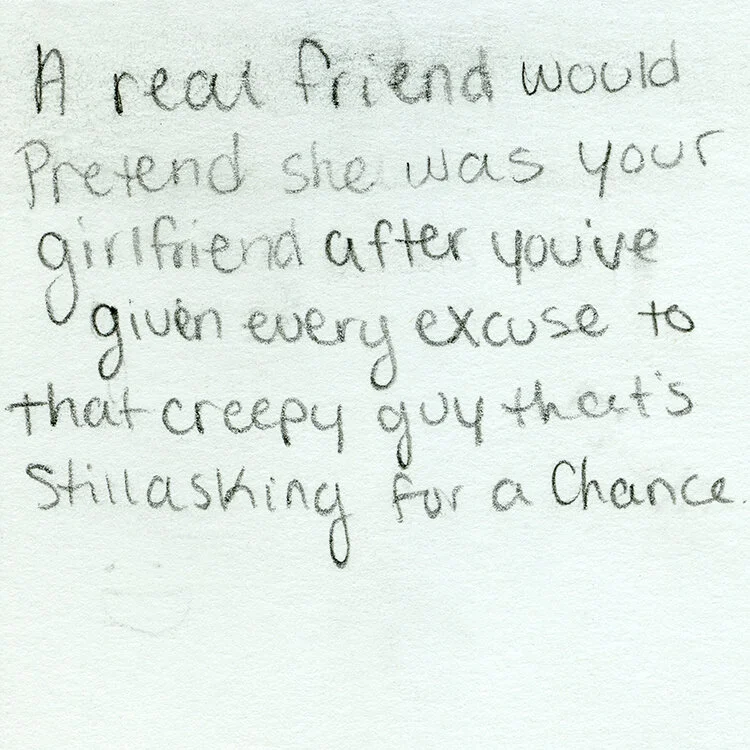 A real friend would
Pretend she was your
girlfriend after you've
given every excuse to
that creepy guy that's
Still asking for a Chance.